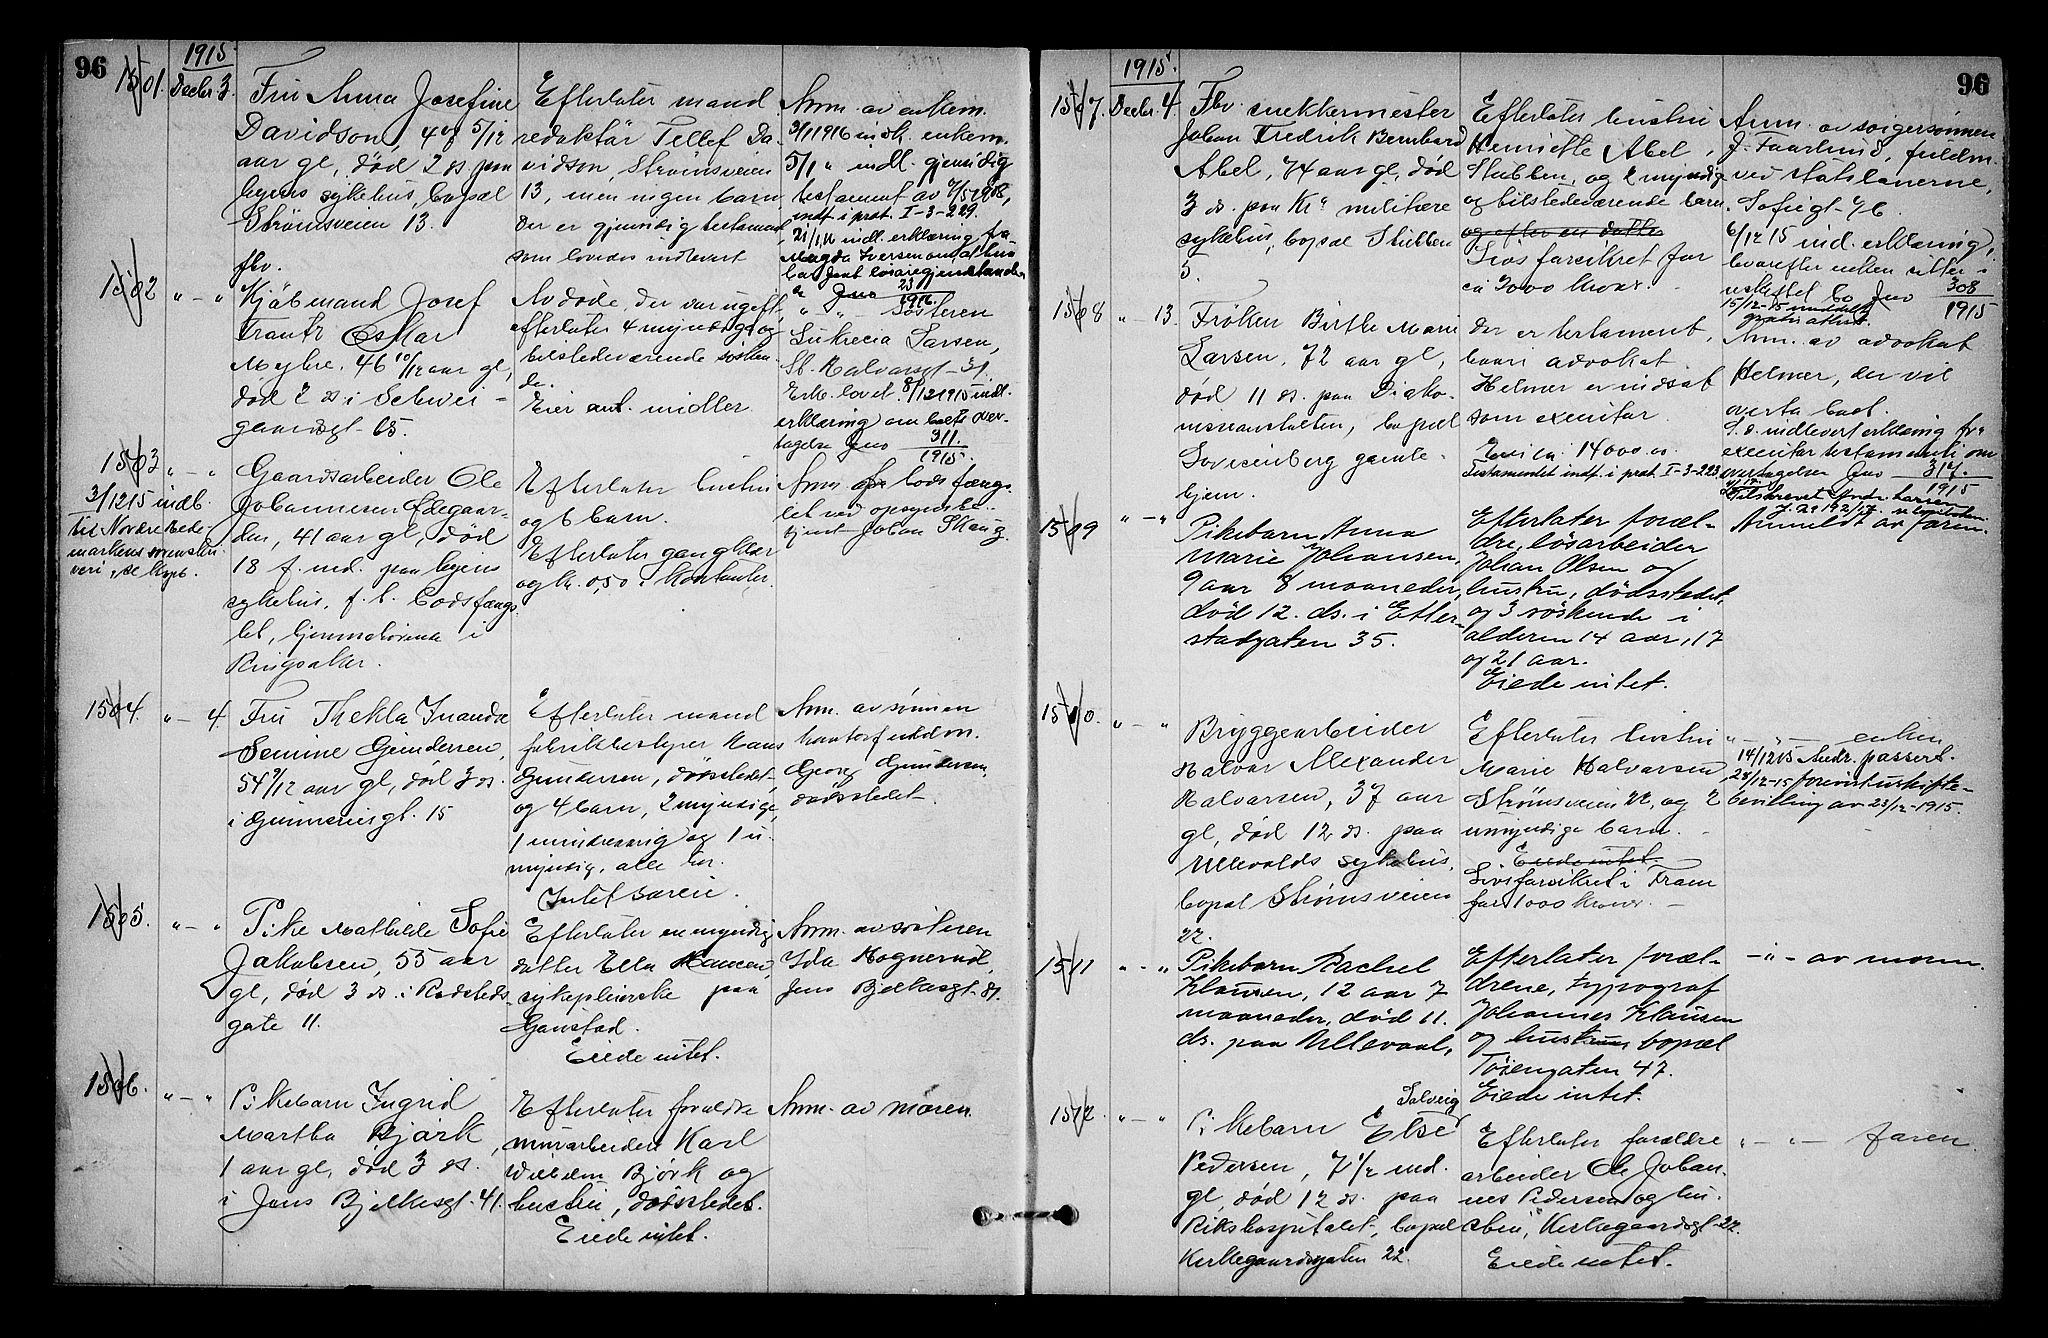 96
1915
1501. Decbr 3.
Fru Anna Josefine
Davidson, 48 5/12
aar gl, død 2 ds paa
byens sykehus, bopæl
Strømsveien 13.
Efterlater mand
redaktør Tellef Da-
vidson, Strømsveien
13, men ingen barn.
Der er gjensidig testament
som lovedes indlevert
Anm. av enkem.
3/1 1916 indk. enkem.
5/1 " indl. gjensidig
testament av
indf. i prot. I-3-229.
indl. erklæring fra
Magda Iversen om at hun
har faat løsøregjenstande
ne Jno 23
1916.
1502 " - "
fhv.
Kjøbmand Josef
Frantz Oskar
Myhre, 46 10/12 aar gl,
død 2 ds i Schwei-
gaardsgt. 65.
Avdøde, der var ugift,
efterlater 4 myndige og
tilstedeværende søsken-
de.
Eier ant. midler.
" - " søsteren
Lukrecia Larsen,
St. Halvardsgt. 31.
Erkl. lovet. 8/12 1915 indl.
erklæring om boets over-
tagelse Jno 311.
1915.
1503 " - "
3/12 15 indb.
til Nordre Hede-
markens sorenskri-
veri, se kopb.
Gaardsarbeider Ole
Johannesen Ødegaar-
den, 41 aar gl, død
18 f. md. paa byens
sykehus, f. t. bodsfæng-
let, hjemmehørende i
Ringsaker.
Efterlater hustru
og 6 barn.
Efterlater gangklær
og kr. 0,50 i kontanter.
Anm. fra bodsfæng-
let ved opsynsbe-
tjent Johan Skaug.
1504. " - 4.
Fru Thekla Juanda
Semine Gundersen,
54 7/12 aar gl, død 3 ds.
i Gruner gt. 15
Efterlater mand
fabrikbestyrer Hans
Gundersen, dødsstedet,
og 4 barn, 2 myndige,
1 mindreaarig og 1 u-
myndig, alle her.
Intet særeie.
Anm. av sønnen
kontorfuldm.
Georg Gundersen,
dødsstedet.
1505. " - "
Pike Mathilde Sofie
Jakobsen, 55 aar
gl, død 3 ds. i Rødsteds-
gate 11.
Efterlater en myndig
datter Ella Hansen,
sykepleierske paa
Gaustad.
Eiede intet.
Anm. av søsteren
Ida Kognerud,
Jens Bjelkesgt. 81.
1506. " - "
Pikebarn Ingrid
Martha Bjørk,
1 aar gl, død 3 ds.
i Jens Bjelkesgt. 41.
Efterlater forældre
murarbeider Karl
Wilhelm Bjørk og
hustru, dødsstedet.
Eiede intet.
Anm. av moren.
96
1915.
1507. Decbr. 4.
Fhv. snekkermester
Johan Fredrik Bernhard
Abel, 74 aar gl, død
3 ds. paa Kra militære
sykehus, bopæl Stubben
5.
Efterlater hustru
Henriette Abel,
Stubben, og 2 myndige
og tilstedeværende barn.
og efter en datter
Livsforsikret for
ca 2000 kroner.
Anm. av svigersønnen
J. Faarlund, fuldm.
ved statsbanerne,
Sofiegt. 46.
6/12 15 ind. erklæring,
hvorefter enken sitter i
uskiftet bo Jno 308
1915
15/12-15 meddelt
gratis attest.
1508 " - 13.
Frøken Birthe Marie
Larsen, 72 aar gl,
død 11 ds. paa Diako-
nisseanstalten, bopæl
Lovisenberg gamle-
hjem.
Der er testament,
hvori advokat
Helmer er indsat
som executor
Eier ca. 14000 kr.
Testamentet indf. i prot. I-3-223
Anm. av advokat
Helmer, der vil
overta boet.
S. d. indlevert erklæring fra
executor testamenti om
overtagelsen Jno 314.
1915
1509 " - "
Pikebarn Anna
Marie Johansen,
9 aar 8 maaneder,
død 12. ds. i Etter-
stadgaten 35.
Efterlater foræl-
dre, løsarbeider
Johan Olsen og
hustru, dødsstedet,
og 3 søskende i
alderen 14 aar, 17
og 21 aar.
Eiede intet.
Anmeldt av faren.
1510. " - "
Bryggearbeider
Halvor Alexander
Halvorsen, 37 aar
gl, død 12 ds. paa
Ullevolds sykehus,
bopæl Strømsveien
22.
Efterlater hustru
Marie Halvorsen,
Strømsveien 22, og 2
umyndige barn.
Eiede intet.
Livsforsikret i Fram
for 1000 kroner.
" - " - enken
14/12 15 Andr. passert.
28/12-15 forevist uskifte-
bevilling av 23/12-1915.
1511 " - "
Pikebarn Rachel
Klausen, 12 aar 7
maaneder, død 11.
ds. paa Ullevaal,
Efterlater foræl-
drene, typograf
Johannes Klausen
og hustru, bopæl
Tøiengaten 47.
Eiede intet.
- " - av moren.
1512. " - "
Solveig
Pikebarn Else
Pedersen, 7 1/2 md.
gl, død 12 ds. paa
Rikshospitalet, bopæl
Kirkegaardsgaten 22.
Efterlater forældre
arbeider Ole Johan-
nes Pedersen og hu-
stru, Kirkegaardsgt. 22.
Eiede intet.
" - " - faren.